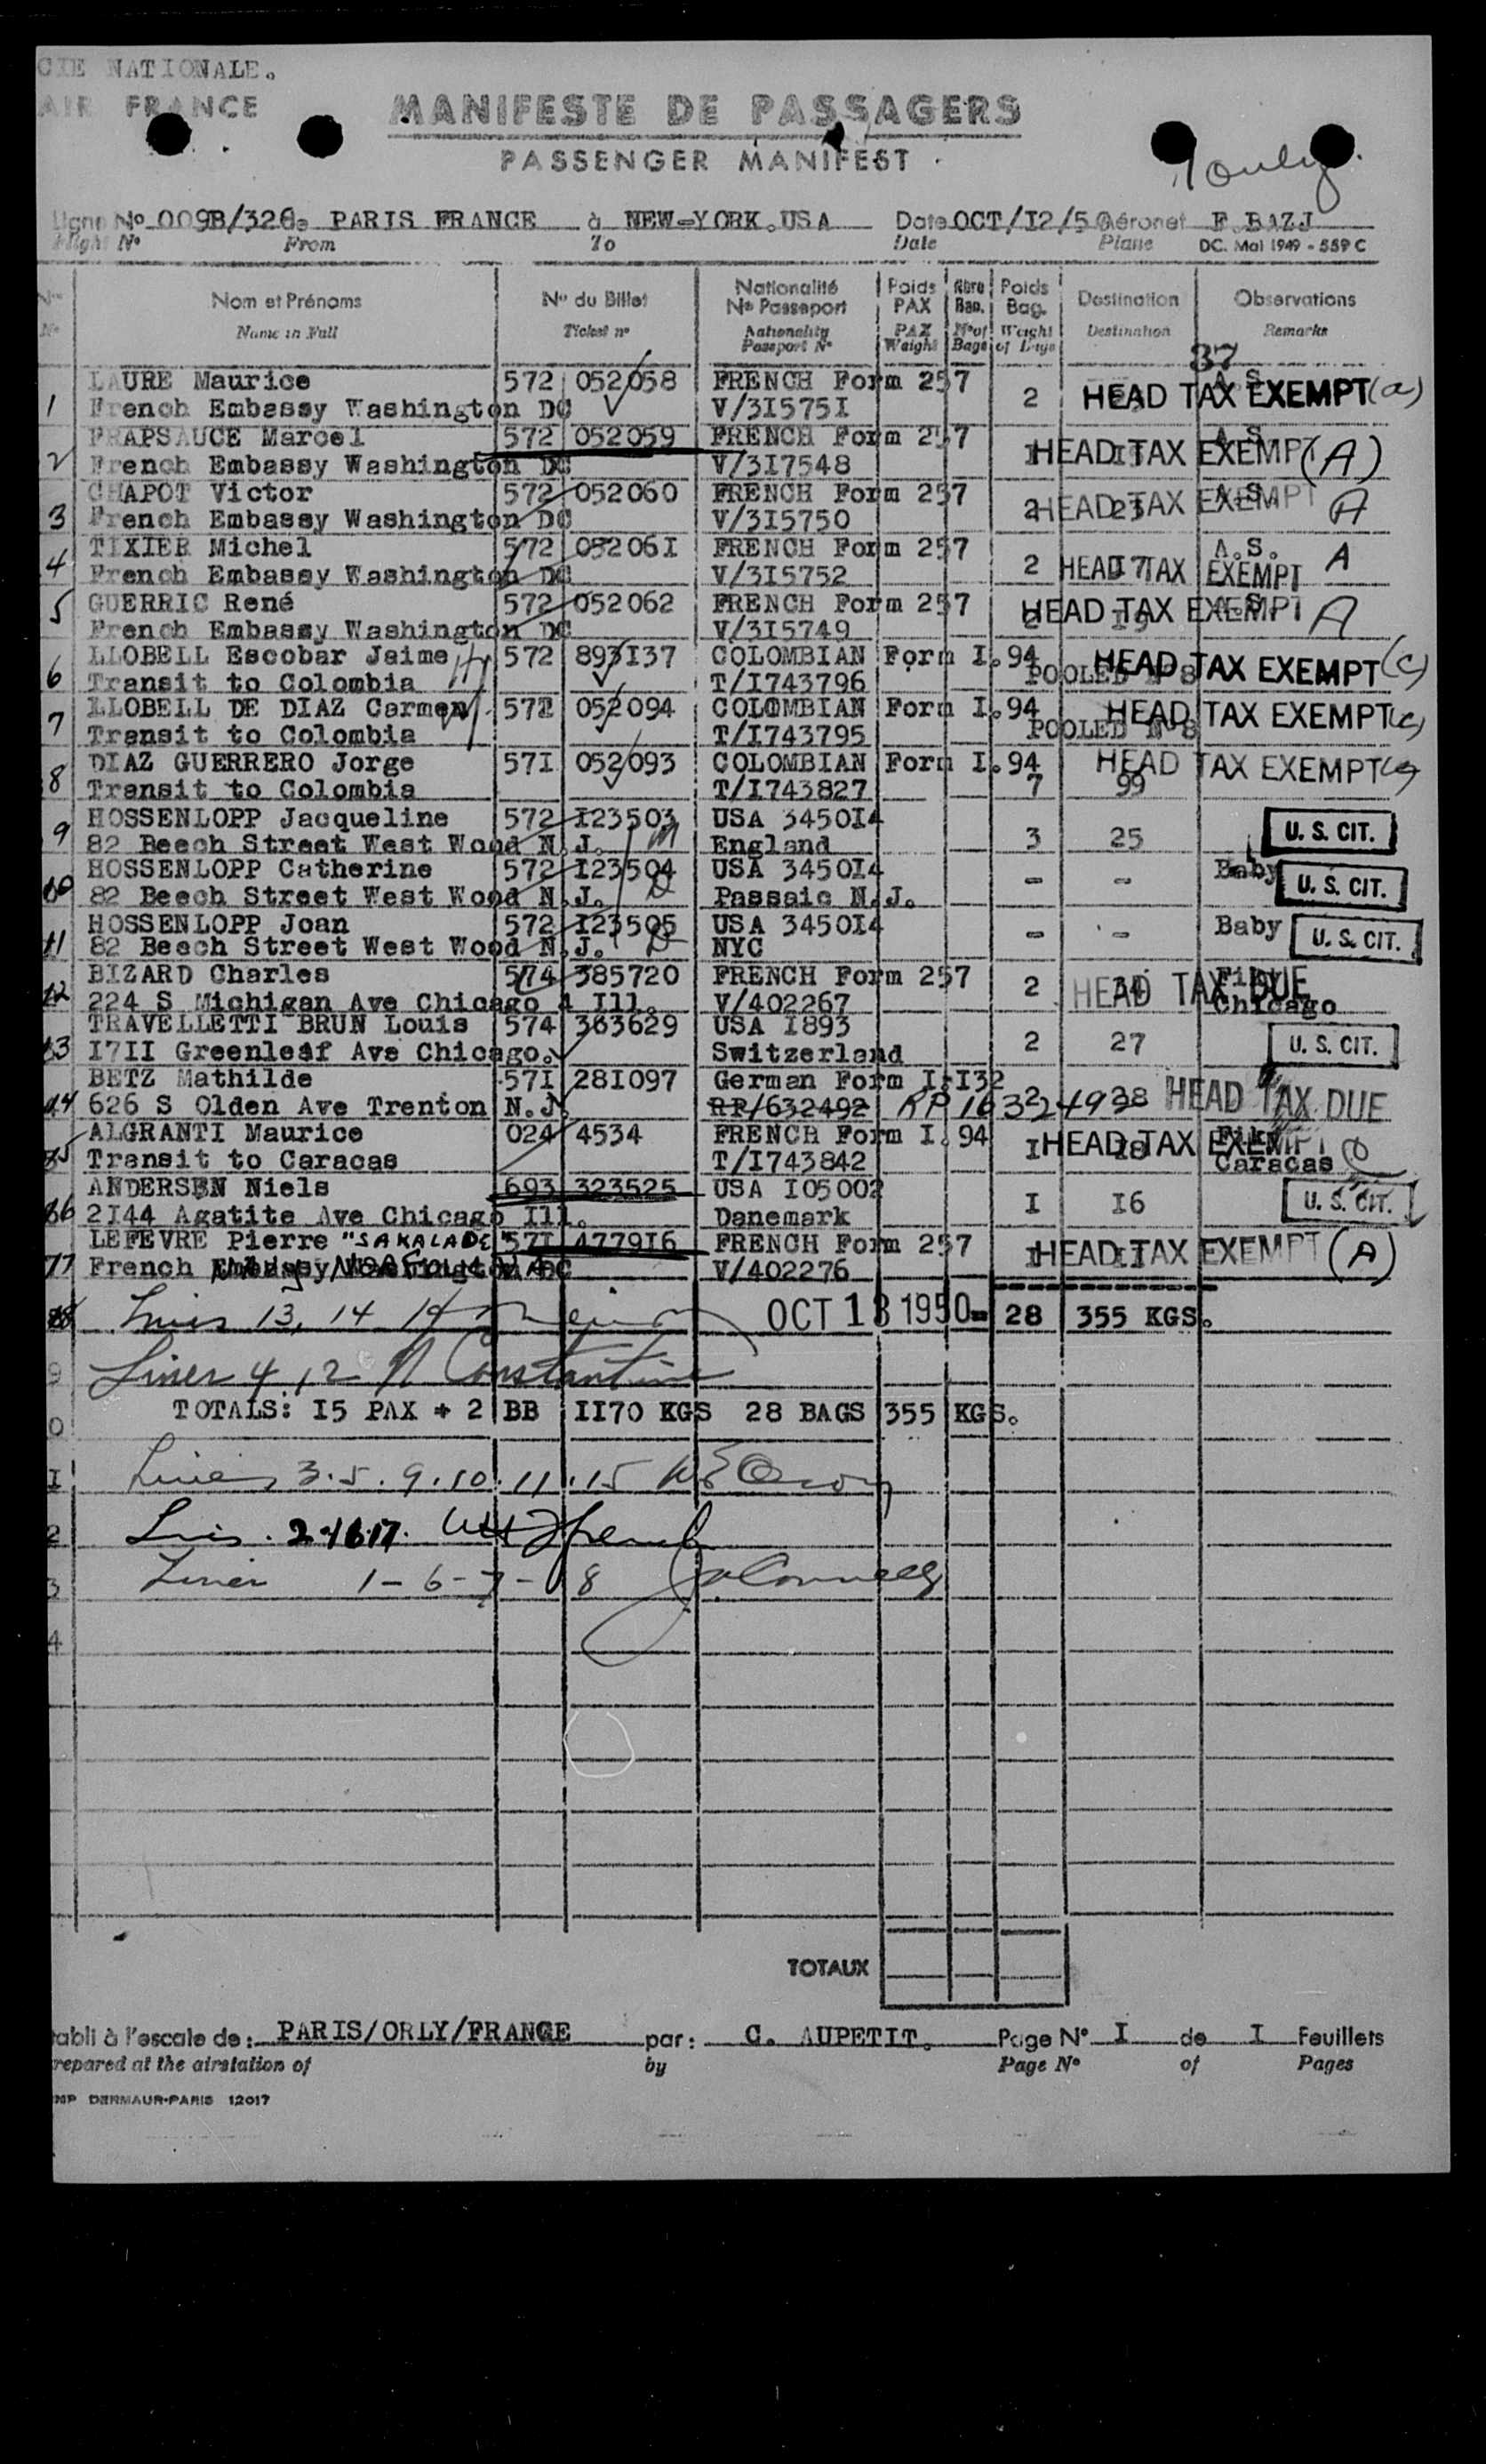 CIE NATIONALE.
AIR FRANCE
MANIFESTE DE PASSAGERS
PASSENGER MANIFEST
Ligne No 009B/326 De PARIS FRANCE à NEW-YORK.USA Date OCT/I2/50 Aéronef F.BAZJ
Flight No From To Date Plane DC. Mai 1949 - 559 C
Nom et Prénoms No du Billet Nationalité No Passeport Poids PAX Nbre Bag. Poids Bag. Destination Observations
Name in Full Ticket no Nationality Passport No PAX Weight No of Bags Weight of Bags Destination Remarks
37
LAURE Maurice 572 052058 FRENCH Form 257 A.S.
1 French Embassy Washington DC V/3I575I 2 HEAD TAX EXEMPT (a)
FRAPSAUCE Marcel 572 052059 FRENCH Form 257 A.S.
2 French Embassy Washington DC V/3I7548 HEAD TAX EXEMPT (A)
CHAPOT Victor 572 052060 FRENCH Form 257 A.S.
3 French Embassy Washington DC V/3I5750 2 23 HEAD TAX EXEMPT A
TIXIER Michel 572 05206I FRENCH Form 257 A.S.
4 French Embassy Washington DC V/3I5752 2 I7 HEAD TAX EXEMPT A
GUERRIC René 572 052062 FRENCH Form 257 A.S.
5 French Embassy Washington DC V/3I5749 2 I9 HEAD TAX EXEMPT A
LLOBELL Escobar Jaime 572 893I37 COLOMBIAN Form I.94
6 Transit to Colombia T/I743796 POOLED N° 8 HEAD TAX EXEMPT (c)
LLOBELL DE DIAZ Carmen 57I 052094 COLOMBIAN Form I.94
7 Transit to Colombia T/I743795 POOLED N° 8 HEAD TAX EXEMPT (c)
DIAZ GUERRERO Jorge 57I 052093 COLOMBIAN Form I.94 HEAD TAX EXEMPT (c)
8 Transit to Colombia T/I743827 7 99
HOSSENLOPP Jacqueline 572 I23503 USA 3450I4
9 82 Beech Street West Wood N.J. M England 3 25 U. S. CIT.
HOSSENLOPP Catherine 572 I23504 USA 3450I4 Baby
10 82 Beech Street West Wood N.J. D Passaic N.J. - - U. S. CIT.
HOSSENLOPP Joan 572 I23505 USA 3450I4 Baby
11 82 Beech Street West Wood N.J. D NYC - - U. S. CIT.
BIZARD Charles 574 385720 FRENCH Form 257
12 224 S Michigan Ave Chicago 4 Ill. V/402267 2 HEAD TAX DUE Chicago
TRAVELLETTI BRUN Louis 574 363629 USA I893
13 I7II Greenleaf Ave Chicago. Switzerland 2 27 U. S. CIT.
BETZ Mathilde 57I 28I097 German Form I-I32
14 626 S Olden Ave Trenton N.J. RP/632492 RP 1632492 2 38 HEAD TAX DUE
ALGRANTI Maurice 024 4534 FRENCH Form I.94
15 Transit to Caracas T/I743842 I I8 HEAD TAX EXEMPT Caracas
ANDERSEN Niels 693 323525 USA I05002
16 2I44 Agatite Ave Chicago Ill. Danemark I I6 U. S. CIT.
LEFEVRE Pierre "SAKALADE" 57I 4779I6 FRENCH Form 257
17 French Embassy Washington DC V/402276 HEAD TAX EXEMPT (A)
18 Lines 13, 14 OCT 13 1950 28 355 KGS.
9 Lines 4, 12 Constantine
TOTALS: I5 PAX + 2 BB II70 KGS 28 BAGS 355 KGS.
0
I Lines 3. 5. 9. 10. 11. 15
2 Lines. 2-16-17.
3 Lines 1-6-7-8
4
TOTAUX
tabli à l'escale de: PARIS/ORLY/FRANCE par: C. AUPETIT. Page N° I de I Feuillets
repared at the airstation of by Page No of Pages
IMP DERMAUR-PARIS 12017